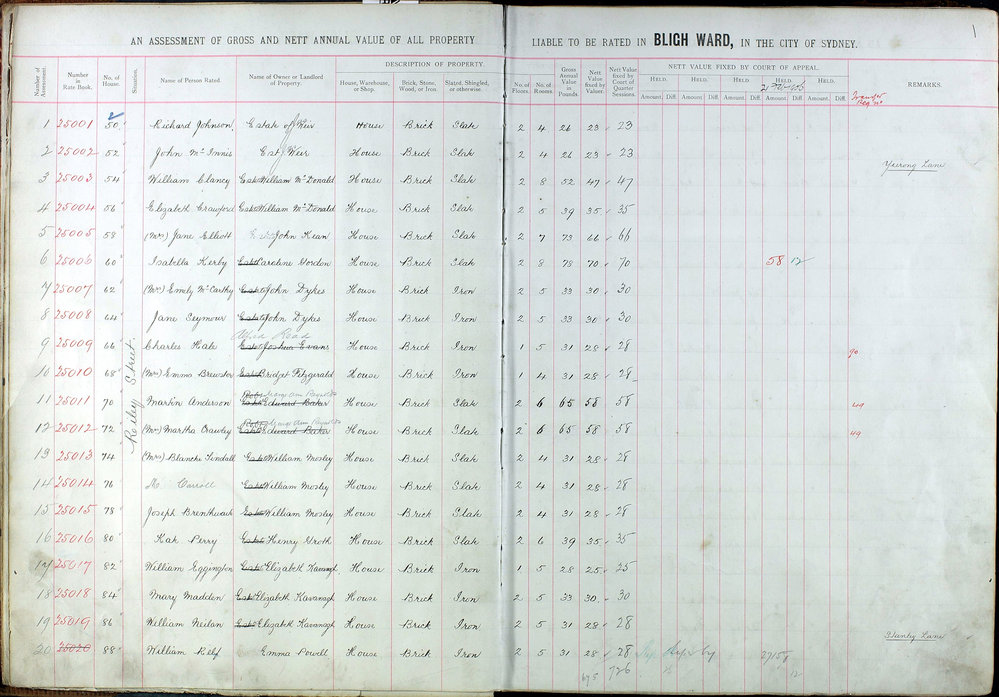 1
AN ASSESSMENT OF GROSS AND NETT ANNUAL VALUE OF ALL PROPERTY LIABLE TO BE RATED IN BLIGH WARD, IN THE CITY OF SYDNEY.
Number of Assessment. Number in Rate Book. No. of House. Situation. Name of Person Rated. Name of Owner or Landlord of Property. DESCRIPTION OF PROPERTY. House, Warehouse, or Shop. Brick, Stone, Wood, or Iron. Slated, Shingled, or otherwise. No. of Floors. No. of Rooms. Gross Annual Value in Pounds. Nett Value fixed by Valuer. Nett Value fixed by Court of Quarter Sessions. NETT VALUE FIXED BY COURT OF APPEAL. HELD. HELD. HELD. HELD. HELD. Amount. Diff. Amount. Diff. Amount. Diff. Amount. Diff. Amount. Diff. Transfer Reg. No. REMARKS.
Riley Street.
2
1 25001 50 Richard Johnson Estate of Weir House Brick Slate 2 4 26 23 23
2 25002 52 John McInnis Est Weir House Brick Slate 2 4 26 23 23
Yurong Lane
3 25003 54 William Clancy Est William McDonald House Brick Slate 2 8 52 47 47
4 25004 56 Elizabeth Crawford Est William McDonald House Brick Slate 2 5 39 35 35
5 25005 58 (Mrs) Jane Elliott John Kean House Brick Slate 2 7 73 66 66
6 25006 60 Isabella Kerby Est Caroline Gordon House Brick Slate 2 8 78 70 70 58 12
7 25007 62 (Mrs) Emily McCarthy Est John Dykes House Brick Iron 2 5 33 30 30
8 25008 64 Jane Seymour Est John Dykes House Brick Iron 2 5 33 30 30
Alfred Read
9 25009 66 Charles Hales Est Joshua Evans House Brick Iron 1 5 31 28 28 90
10 25010 68 (Mrs) Emma Brewster Est Bridget Fitzgerald House Brick Iron 1 4 31 28 28
11 25011 70 Martin Anderson Est Edward Baker House Brick Slate 2 6 65 58 58 49
12 25012 72 (Mrs) Martha Crawley Est Edward Baker House Brick Slate 2 6 65 58 58 49
13 25013 74 (Mrs) Blanche Tindall Est William Mosley House Brick Slate 2 4 31 28 28
14 25014 76 M. Carroll Est William Mosley House Brick Slate 2 4 31 28 28
15 25015 78 Joseph Brenthwaite Est William Mosley House Brick Slate 2 4 31 28 28
16 25016 80 Kate Perry Est Henry Groth House Brick Slate 2 6 39 35 35
17 25017 82 William Eggington Est Elizabeth Kavanagh House Brick Iron 1 5 28 25 25
18 25018 84 Mary Madden Est Elizabeth Kavanagh House Brick Iron 2 5 33 30 30
19 25019 86 William Neilan Est Elizabeth Kavanagh House Brick Iron 2 5 31 28 28
Stanley Lane
20 25020 88 William Relf Emma Powell House Brick Iron 2 5 31 28 28
726
12